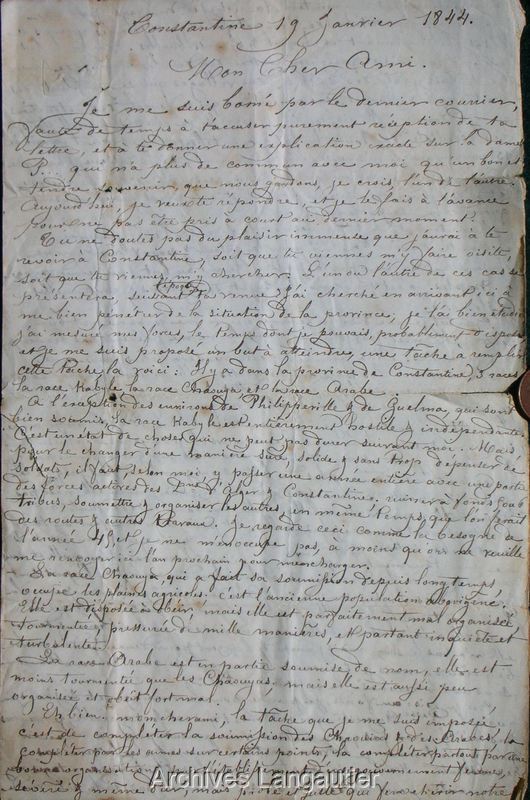 Constantine 19 Janvier 1844.
Mon Cher Ami.
Je me suis borné par le dernier courrier,
faute de temps à t'accuser purement réception de ta
lettre, et à te donner une explication exacte sur la dame
P... qui n'a plus de commun avec moi qu'un bon et
tendre souvenir, que nous gardons, je crois, l'un de l'autre.
Aujourd'hui, je veux te répondre, et je le fais à l'avance
pour ne pas être pris à court au dernier moment.
Tu ne doutes pas du plaisir immense que j'aurai à te
revoir à Constantine, soit que tu viennes m'y faire visite,
soit que tu viennes m'y chercher. L'un ou l'autre de ces cas se
présentera, suivant l'époque de ta venue. J'ai cherché en arrivant ici à
me bien pénétrer de la situation de la province, je l'ai bien étudiée
j'ai mesuré mes forces, le temps dont je pouvais probablement disposer
et je me suis proposé un but à atteindre, une tâche à remplir
cette tâche la voici: Il y a dans la province de Constantine, 3 races
la race Kabyle la race Chaouya et la race Arabe.
A l'exception des environs de Philippeville & de Guelma, qui sont
bien soumis, la race Kabyle est entièrement hostile & indépendante
C'est un état de choses qui ne peut pas durer suivant moi. Mais
pour le changer d'une manière sûre, solide & sans trop dépenser de
soldats, il faut selon moi y passer une année entière avec une partie
des forces actives des Dons d'Alger & Constantine, ruiner à fond
tribus, soumettre & organiser les autres, en même temps, que l'on ferait
des routes & autres travaux. Je regarde ceci comme la besogne de
l'année 45 et je ne m'en occupe pas, à moins qu'on ne veuille
me renvoyer ici l'an prochain pour m'en charger.
La race Chaouya, qui a fait sa soumission depuis longtemps,
occupe les plaines agricoles. C'est l'ancienne population aborigène.
Elle est disposée à obéir, mais elle est parfaitement mal organisée
tourmentée, pressurée de mille manières, et partant inquiète et
turbulente.
La race Arabe est en partie soumise de nom, elle est
moins tourmentée que les Chaouyas, mais elle est aussi peu
organisée et obéit fort mal.
Eh bien mon cher ami, la tâche que je me suis imposée
c'est de compléter la soumission des Chaouias & des Arabes, la
compléter par les armes sur certains points, la compléter partout par une
bonne organisation gouvernement ferme,
sévère & même dur, mais probe et juste
Archives Langautier